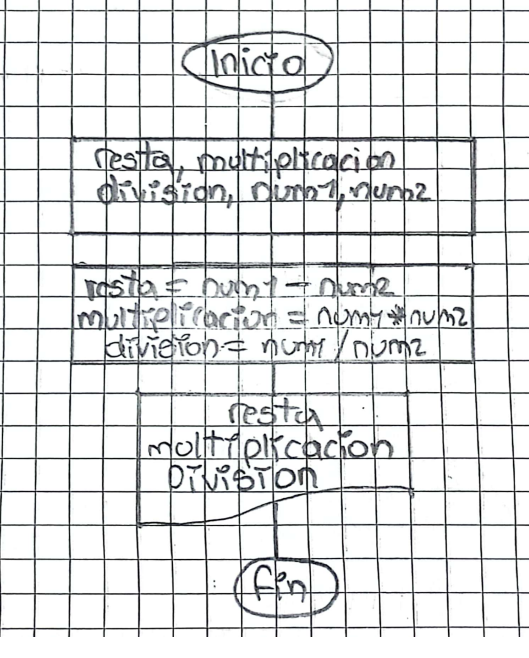 Inicio
resta, multiplicacion
division, num1, num2
resta = num1 - num2
multiplicacion = num1 * num2
division = num1 / num2
resta
moltiplicacion
Division
fin